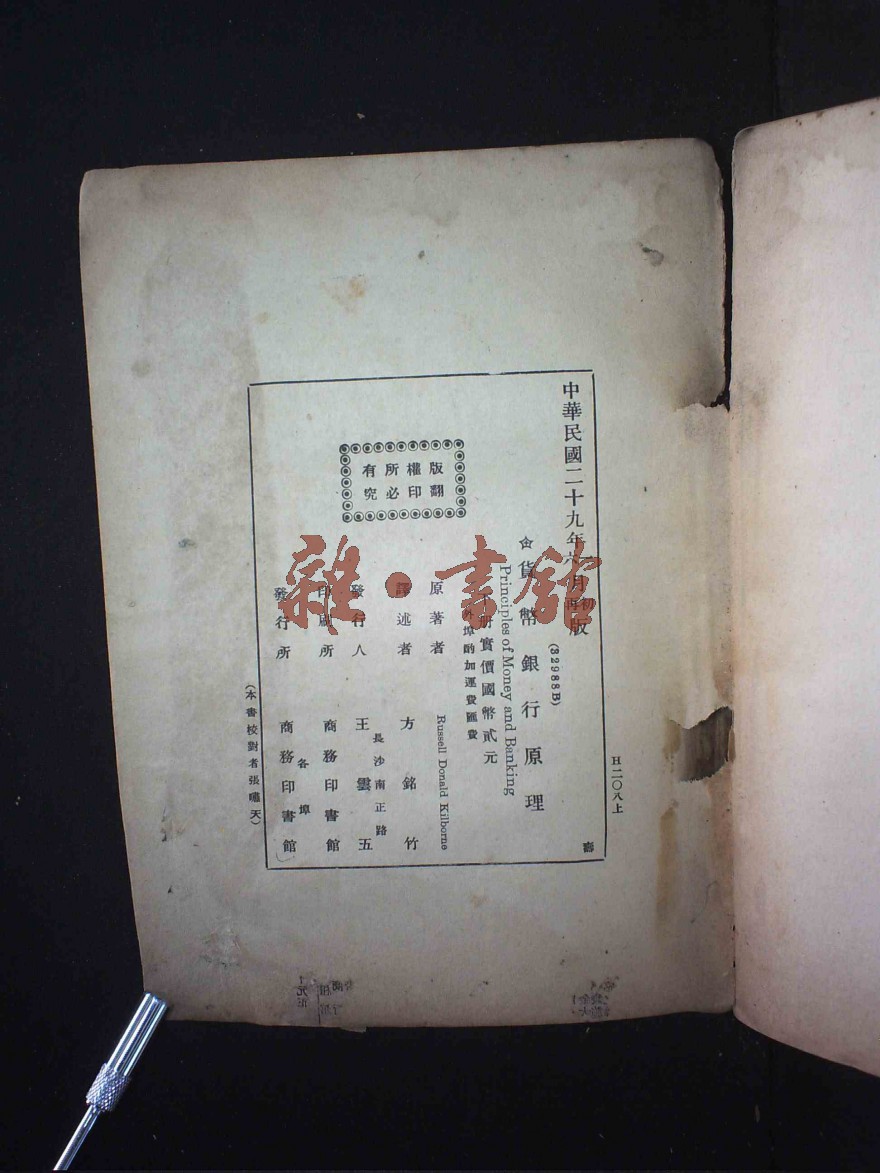 中華民國二十九年六月初版
(32988B)
貨幣銀行原理
Principles of Money and Banking
册實價國幣貳元
外埠酌加運費匯費
版權所有
翻印必究
原著者 Russell Donald Kilborne
譯述者 方銘竹
長沙南正路
發行人 王雲五
印刷所 商務印書館
各埠
發行所 商務印書館
(本書校對者張嘯天)
雜·書館